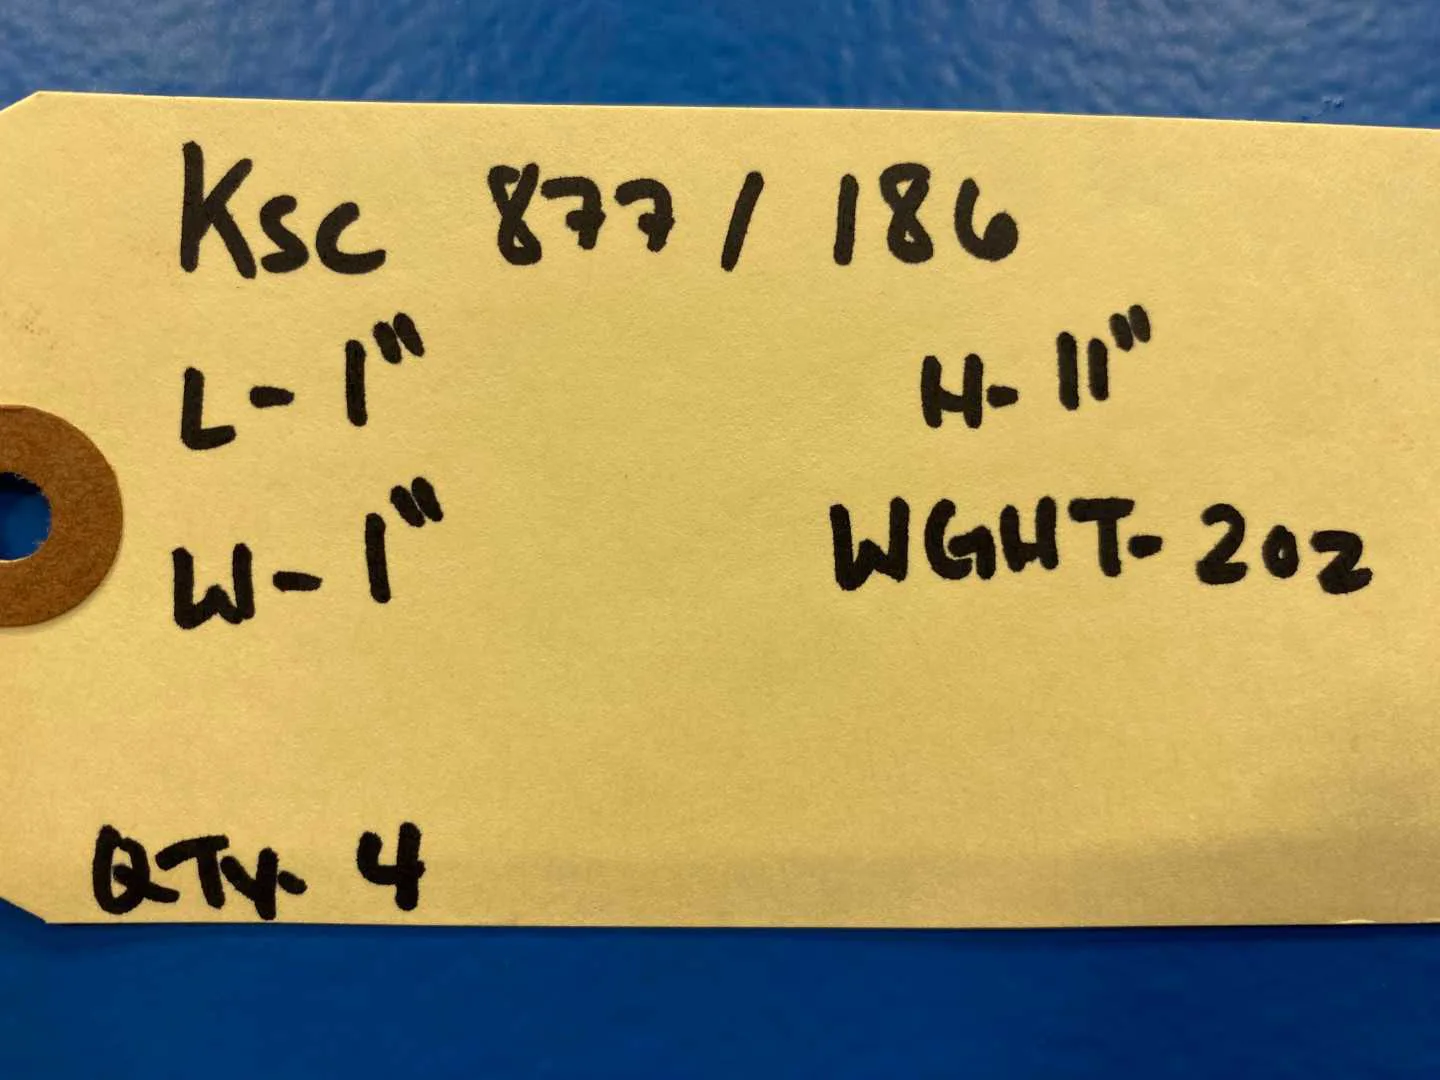 Ksc 877 / 186
L- 1" H- 11"
W- 1" WGHT- 2oz
QTy. 4